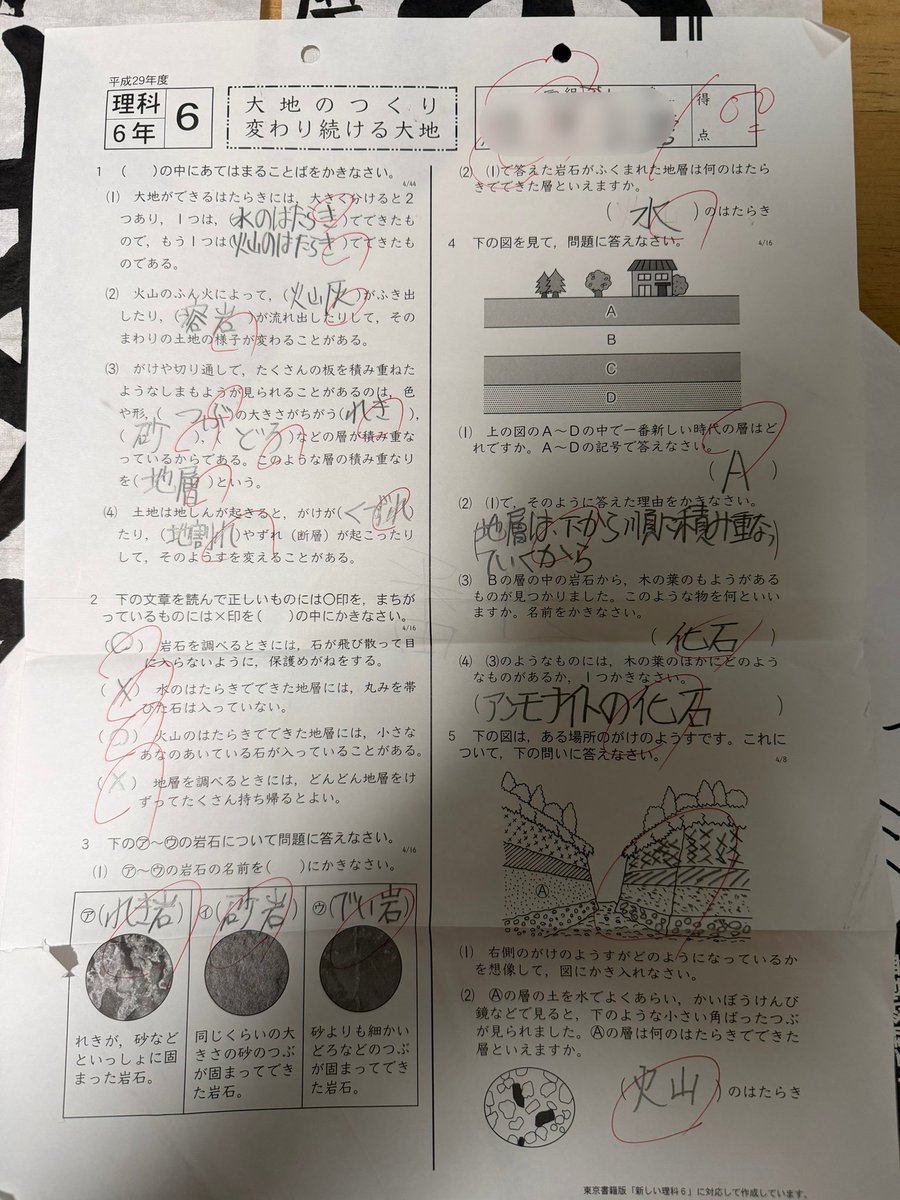 平成29年度
理科
6年
6
大地のつくり
変わり続ける大地
得
点
1 ( )の中にあてはまることばをかきなさい。
4/44
(1) 大地ができるはたらきには，大きく分けると２
つあり，１つは，(水のはたらき)でできたも
ので，もう１つは(火山のはたらき)でできたも
のである。
(2) 火山のふん火によって，(火山灰)がふき出
したり，(溶岩)が流れ出したりして，その
まわりの土地の様子が変わることがある。
(3) がけや切り通しで，たくさんの板を積み重ねた
ようなしまもようが見られることがあるのは，色
や形，(つぶ)の大きさがちがう(れき)，
(砂)，(どろ)などの層が積み重な
っているからである。このような層の積み重なり
を(地層)という。
(4) 土地は地しんが起きると，がけが(くずれ)
たり，(地割れ)やずれ（断層）が起こったり
して，そのようすを変えることがある。
2 下の文章を読んで正しいものには○印を，まちが
っているものには×印を( )の中にかきなさい。
4/16
(○) 岩石を調べるときには，石が飛び散って目
に入らないように，保護めがねをする。
(×) 水のはたらきでできた地層には，丸みを帯
びた石は入っていない。
(○) 火山のはたらきでできた地層には，小さな
あなのあいている石が入っていることがある。
(×) 地層を調べるときには，どんどん地層をけ
ずってたくさん持ち帰るとよい。
3 下の㋐～㋒の岩石について問題に答えなさい。
4/16
(1) ㋐～㋒の岩石の名前を( )にかきなさい。
㋐(れき岩)
㋑(砂岩)
㋒(でい岩)
れきが，砂など
といっしょに固
まった岩石。
同じくらいの大
きさの砂のつぶ
が固まってでき
た岩石。
砂よりも細かい
どろなどのつぶ
が固まってでき
た岩石。
(2) (1)で答えた岩石がふくまれた地層は何のはたら
きでできた層といえますか。
(水)のはたらき
4 下の図を見て，問題に答えなさい。
4/16
A
B
C
D
(1) 上の図のA～Dの中で一番新しい時代の層はど
れですか。A～Dの記号で答えなさい。
(A)
(2) (1)で，そのように答えた理由をかきなさい。
(地層は、下から順に積み重なっ
ていくから
(3) Bの層の中の岩石から，木の葉のもようがある
ものが見つかりました。このような物を何といい
ますか。名前をかきなさい。
(化石)
(4) (3)のようなものには，木の葉のほかにどのよう
なものがあるか，１つかきなさい。
(アンモナイトの化石)
5 下の図は，ある場所のがけのようすです。これに
ついて，下の問いに答えなさい。
4/8
Ⓐ
(1) 右側のがけのようすがどのようになっているか
を想像して，図にかき入れなさい。
(2) Ⓐの層の土を水でよくあらい，かいぼうけんび
鏡などで見ると，下のような小さい角ばったつぶ
が見られました。Ⓐの層は何のはたらきでできた
層といえますか。
(火山)のはたらき
東京書籍版「新しい理科６」に対応して作成しています。